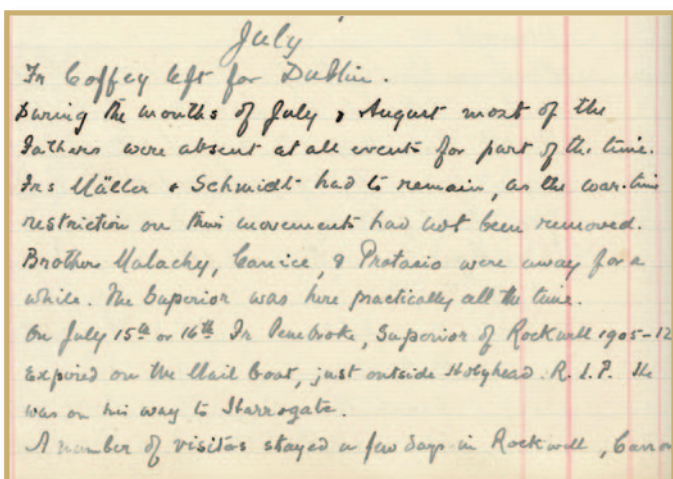 July
Fr Coffey left for Dublin.
During the months of July & August most of the
Fathers were absent at all events for part of the time.
Frs Müller & Schmidt had to remain, as the war-time
restriction on their movements had not been removed.
Brothers Malachy, Canice, & Protasio were away for a
while. The Superior was here practically all the time.
On July 15th or 16th Fr Pembroke, Superior of Rockwell 1905-12
Expired on the Mail boat, just outside Holyhead. R. I. P. He
was on his way to Harrogate.
A number of visitors stayed a few days in Rockwell,